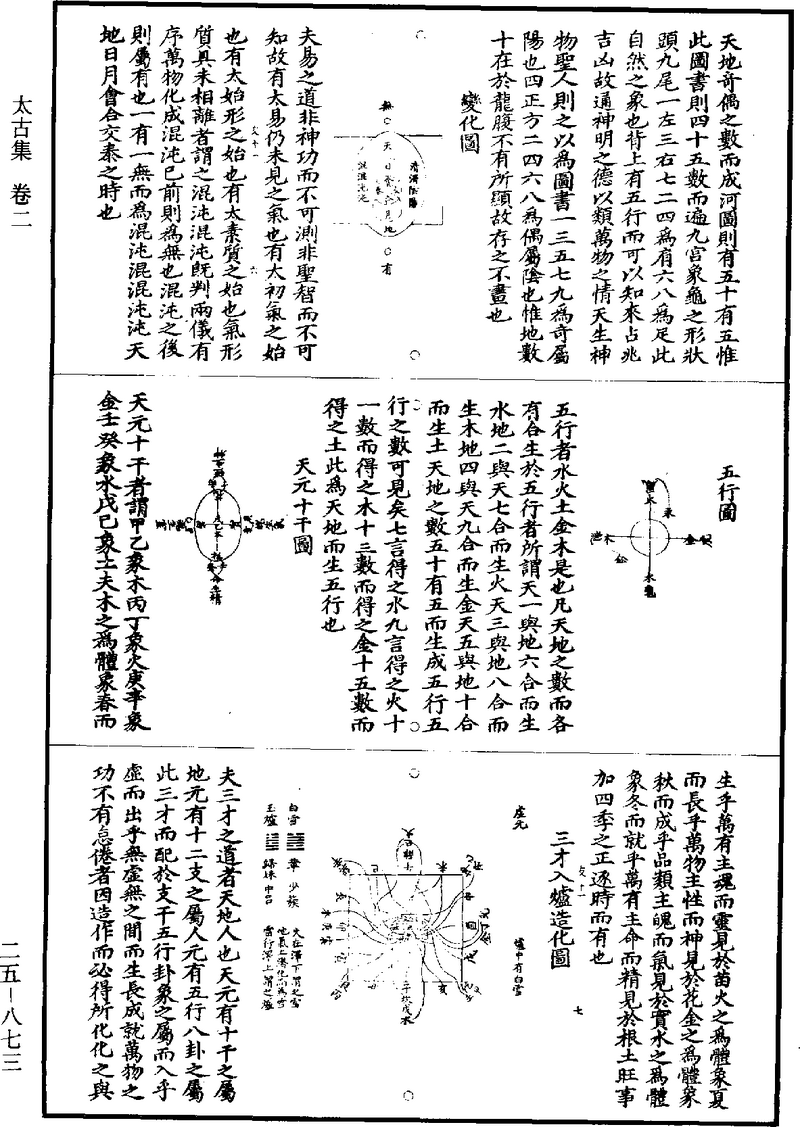 太古集　卷二
二五－八七三
天地奇偶之數而成河圖則有五十有五惟
此圖書則四十五數而遍九宮象龜之形狀
頭九尾一左三右七二四為肩六八為足此
自然之象也背上有五行而可以知來占兆
吉凶故通神明之德以類萬物之情天生神
物聖人則之以為圖書一三五七九為奇屬
陽也四正方二四六八為偶屬陰也惟地數
十在於龍腹不有所顯故存之不畫也
變化圖
無
有
夫易之道非神功而不可測非聖智而不可
知故有太易仍未見之氣也有太初氣之始
也有太始形之始也有太素質之始也氣形
質具未相離者謂之混沌混沌既判兩儀有
序萬物化成混沌已前則為無也混沌之後
則屬有也一有一無而為混沌混混沌沌天
地日月會合交泰之時也
五行圖
火
木
金
水
五行者水火土金木是也凡天地之數而各
有合生於五行者所謂天一與地六合而生
水地二與天七合而生火天三與地八合而
生木地四與天九合而生金天五與地十合
而生土天地之數五十有五而生成五行五
行之數可見矣七言得之水九言得之火十
一數而得之木十三數而得之金十五數而
得之土此為天地而生五行也
天元十干圖
天元十干者謂甲乙象木丙丁象火庚辛象
金壬癸象水戊己象土夫木之為體象春而
生乎萬有主魂而靈見於苗火之為體象夏
而長乎萬物主性而神見於花金之為體象
秋而成乎品類主魄而氣見於實水之為體
象冬而就乎萬有主命而精見於根土旺事
加四季之正逐時而有也
三才入爐造化圖
七
虛无
爐中有白雪
白雪
玉爐
夫三才之道者天地人也天元有十干之屬
地元有十二支之屬人元有五行八卦之屬
此三才而配於支干五行卦象之屬而入乎
虛而出乎無虛無之間而生長成就萬物之
功不有怠倦者因造作而必得所化化之與